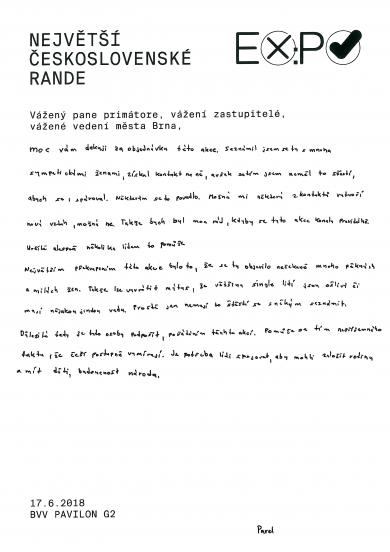 NEJVĚTŠÍ
ČESKOSLOVENSKÉ
RANDE
EXPO
Vážený pane primátore, vážení zastupitelé,
vážené vedení města Brna,
moc vám děkuji za objednávku této akce. Seznámil jsem se tu s mnoha
sympatickými ženami, získal kontakt na ně, avšak zatím jsem neměl to štěstí,
abych se i spároval. Některým se to povedlo. Možná mi některý z kontaktů vytvoří
nový vztah, možná ne. Takže bych byl moc rád, kdyby se tyto akce konaly pravidelně.
Určitě alespoň několika lidem to pomůže.
Největším překvapením této akce bylo to, že se tu objevilo neskutečně mnoho pěkných
a milých žen. Takže lze vyvrátit mýtus, že většina single lidí jsou oškliví či
mají nějakou jinou vadu. Prostě jen nemají to štěstí se s někým seznámit.
Důležité tedy je tyto osoby podpořit, pořádáním těchto akcí. Pomůže se tím nepříjemnému
faktu, že češi postupně vymírají. Je potřeba lidi spárovat, aby mohli založit rodiny
a mít děti, budoucnost národa.
17.6.2018
BVV PAVILON G2
Pavel